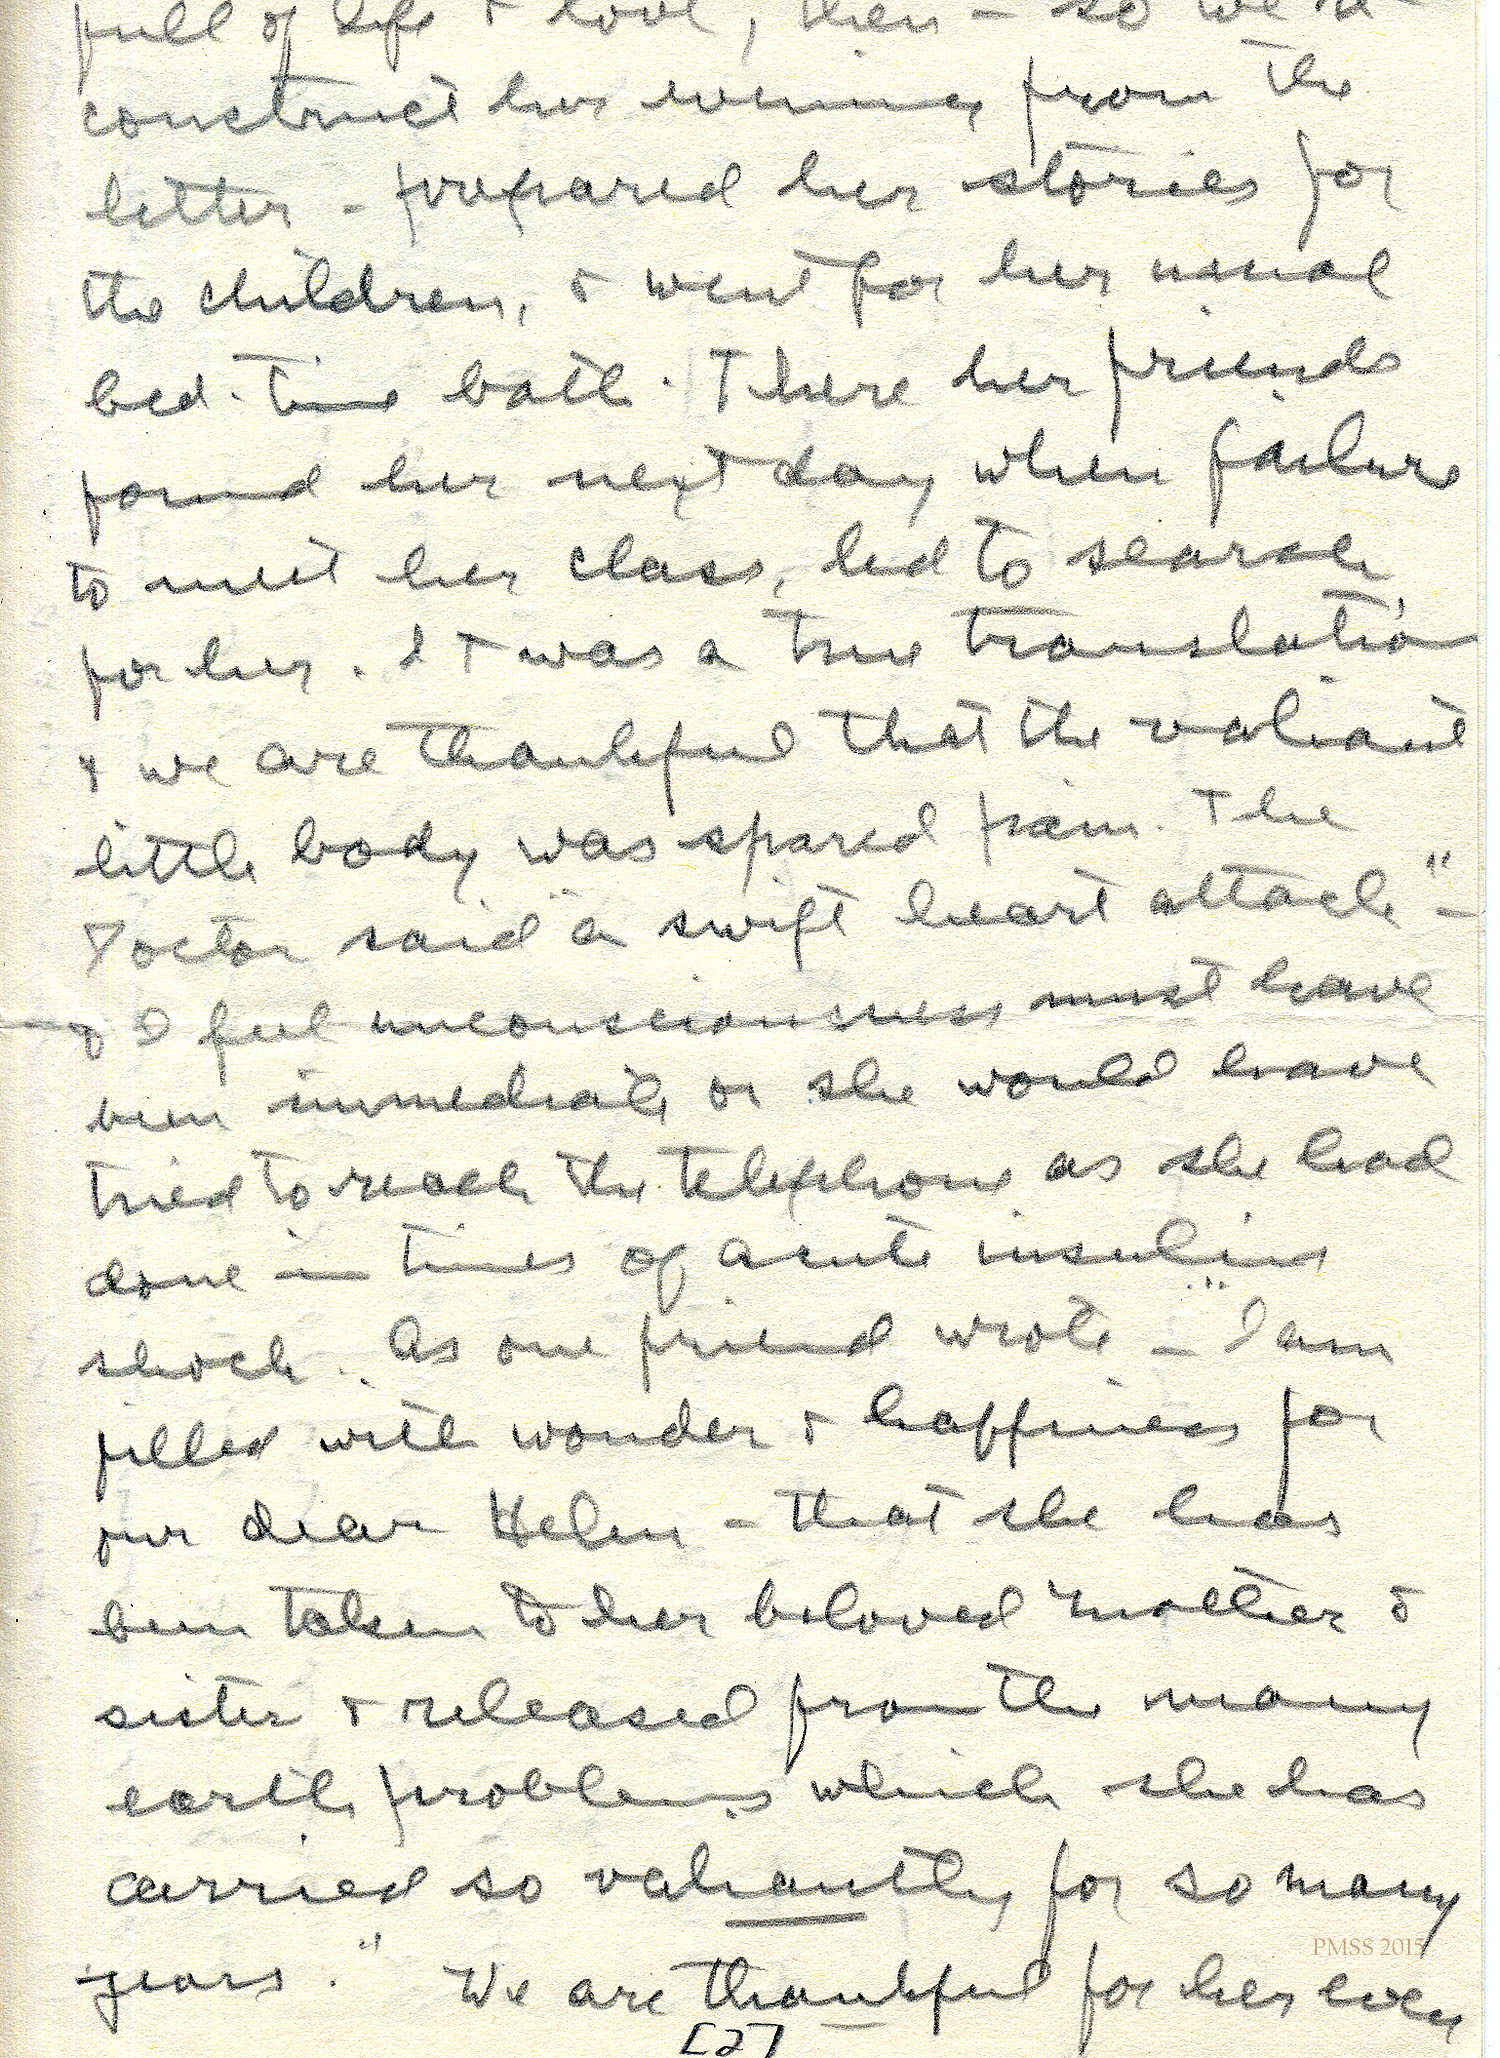 full of life & love, then – so we
construct her evening from the
letter – prepared her stories for
the children, & went for her usual
bed-time bath. There her friends
found her next day when failure
to meet her class, led to search,
for her. It was a true translation
& we are thankful that the valiant
little body was spared pain. The
Doctor said "a swift heart attack" –
& I feel unconsciousness must have
been immediate or she would have
tried to reach the telephone as she had
done in times of acute insulin
shock. As one friend wrote – "I am
filled with wonder & happiness for
our dear Helen – that she has
been taken to her beloved Mother &
sister & released from the many
earth problems which she has
carried so valiantly for so many
years." We are thankful for her even
[2]
PMSS 2015